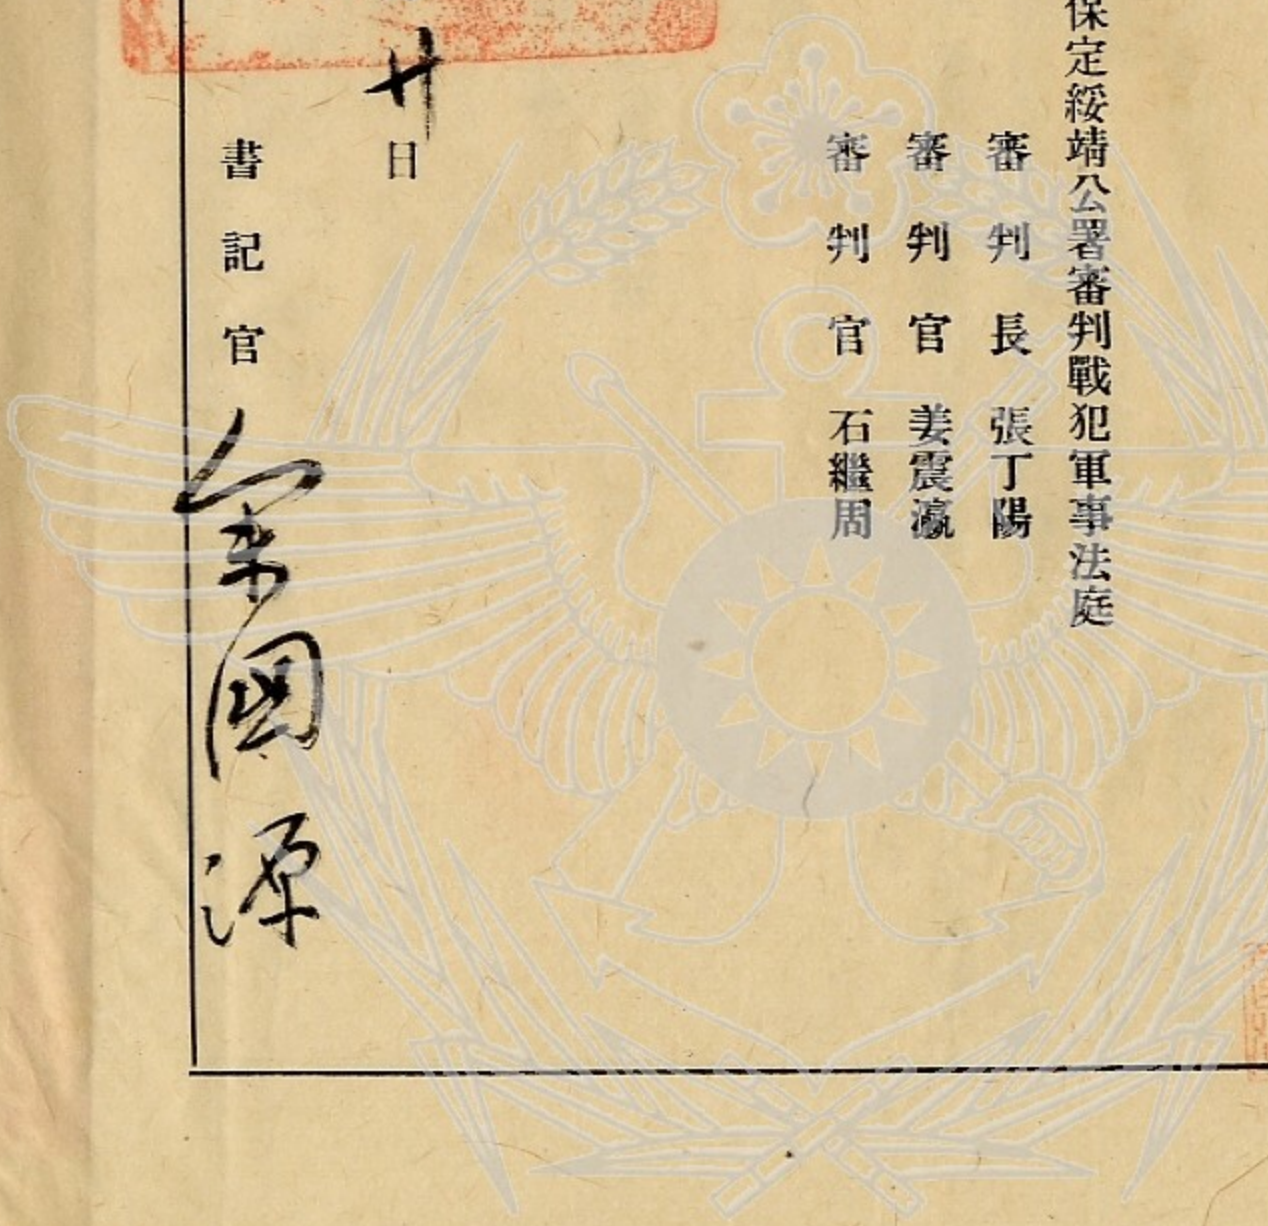 保定綏靖公署審判戰犯軍事法庭
審判長 張丁陽
審判官 姜震瀛
審判官 石繼周
廿日
書記官 余國源